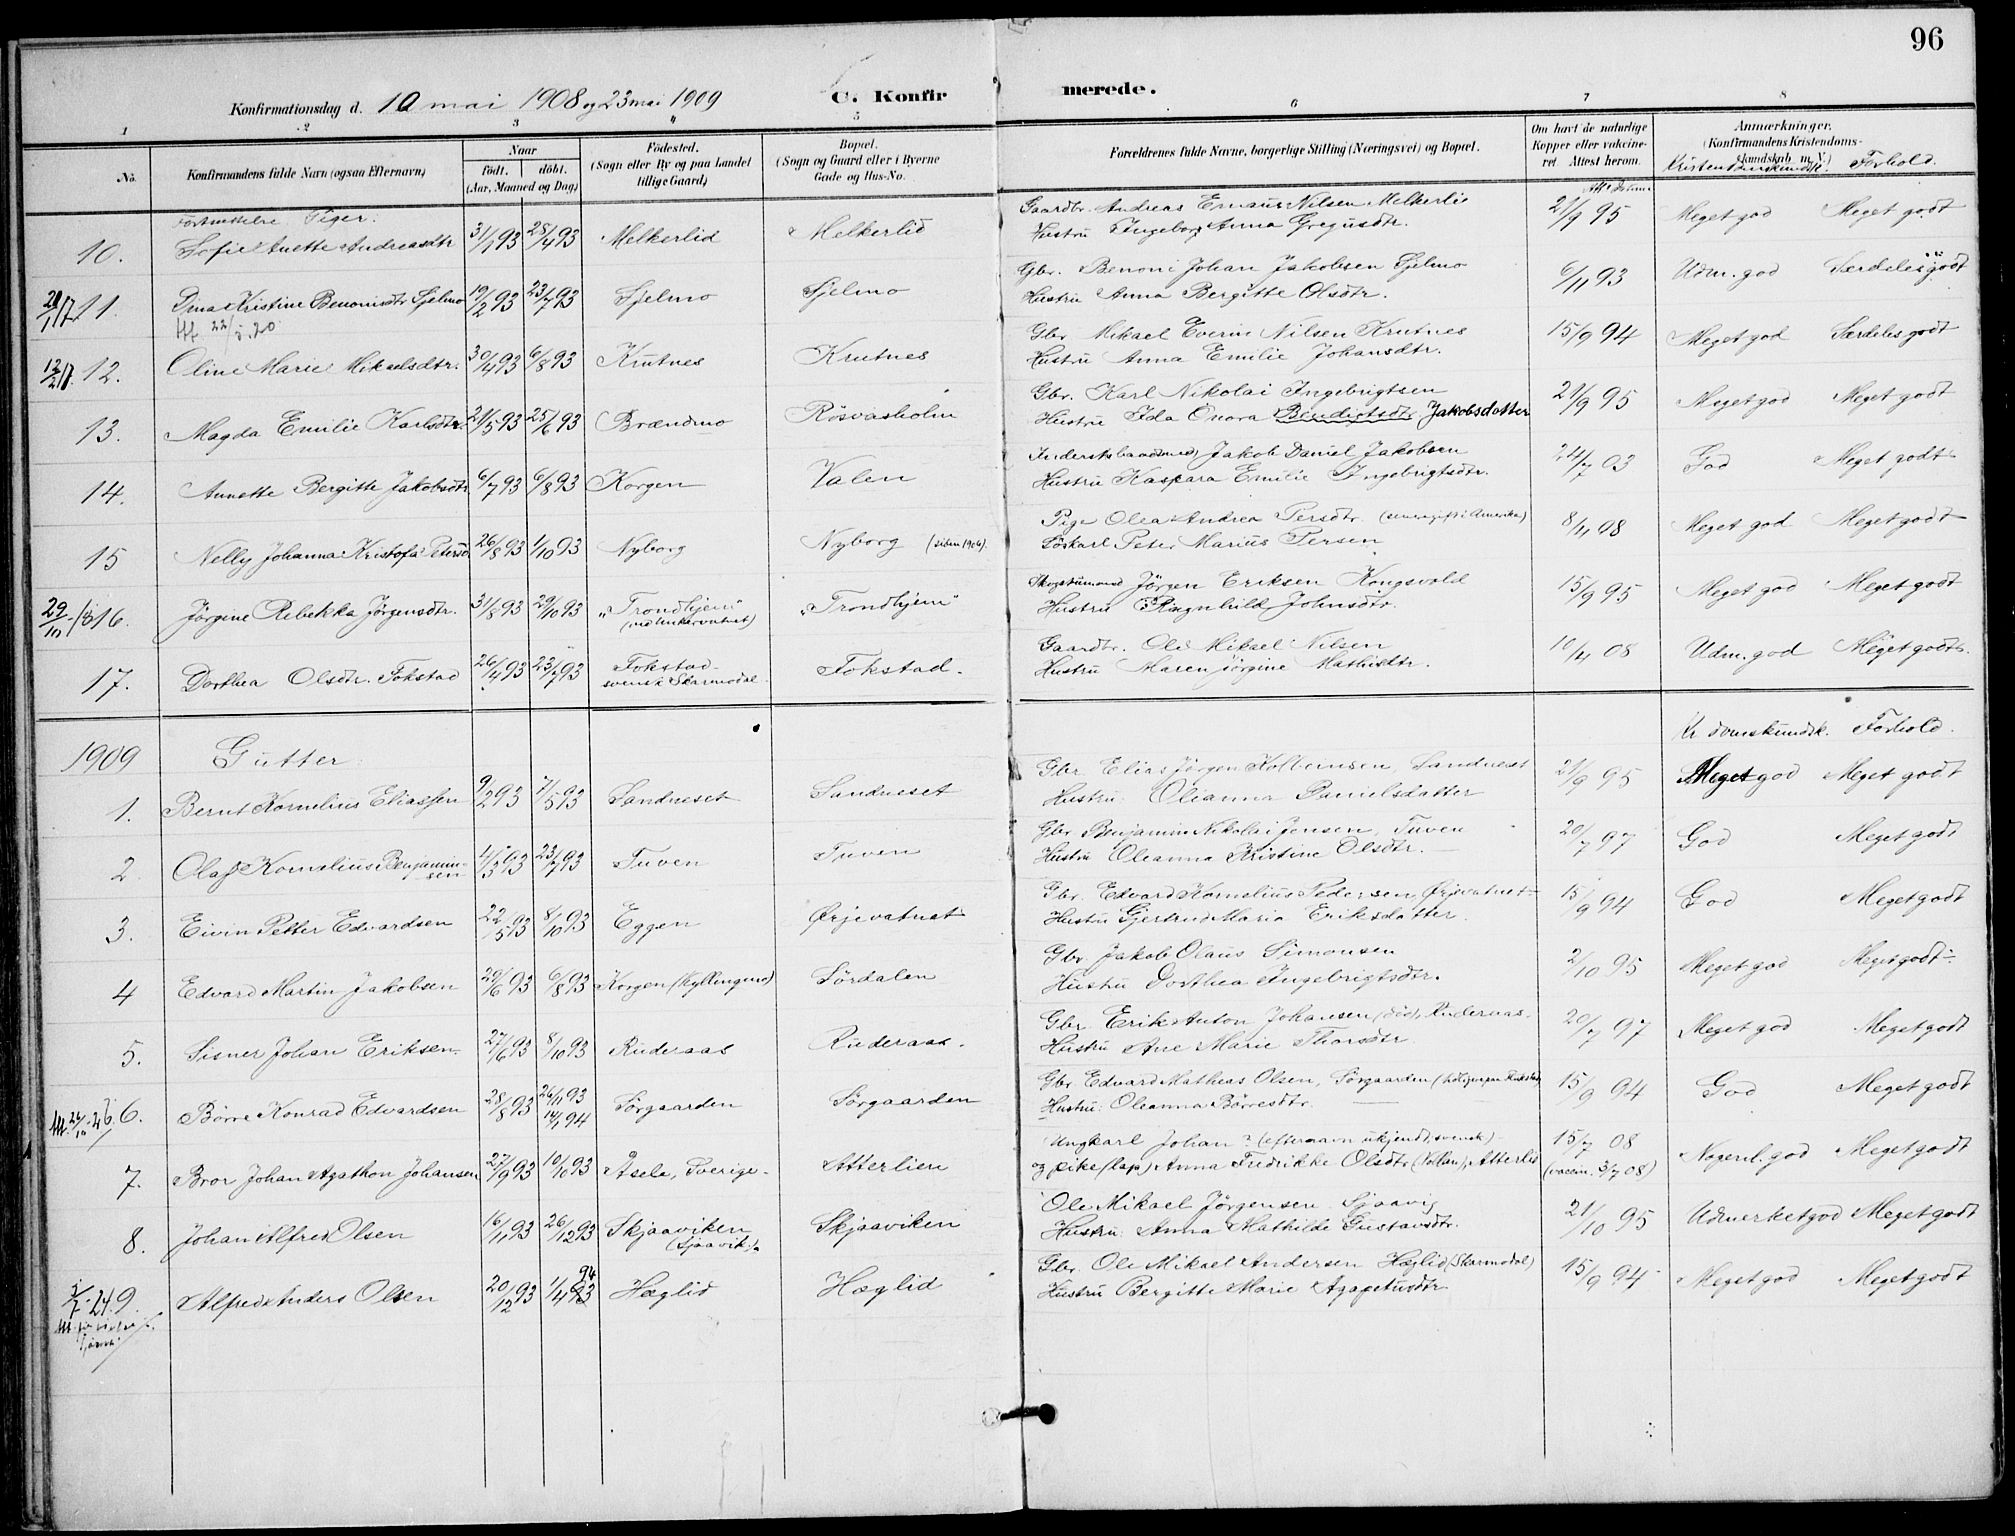 96
Konfirmationsdag d. 10 mai 1908 og 23 mai 1909 C. Konfir merede.
1 2 3 4 5 6 7 8
No. Konfirmandens fulde Navn (ogsaa Efternavn) Naar Födt. döbt. (Aar, Maaned og Dag) Födested. (Sogn eller By og paa Landet tillige Gaard) Bopæl. (Sogn og Gaard eller i Byerne Gade og Hus-No. Forældrenes fulde Navne, borgerlige Stilling (Næringsvei) og Bopæl. Om havt de naturlige Kopper eller vaccineret Attest herom. Anmærkninger. (Konfirmandens Kristendomskundskab m. V.) Kristendomskundsk. Forhold.
Fortsættelse Piger.
10. Sofie Anette Andreasdtr 31/1 93 28/4 93 Melkerlid Melkerlid Gaardbr. Andreas Emaus Nilsen Melkerlie 21/9 95 Meget god Meget godt
Hustru Ingeborg Anna Gregusdtr.
11. Dina Kristine Benonisdtr Sjelmo 19/2 93 23/7 93 Sjelmo Sjelmo Gbr. Benoni Johan Jakobsen Sjelmo 6/11 93 Udm. god Særdeles godt
Hustru Anna Bergitte Olsdtr.
12/2 17. 12. Oline Marie Mikaelsdtr. 30/4 93 6/8 93 Krutnes Krutnes Gbr Mikael Everin Nilsen Krutnes 15/9 94 Meget god Særdeles godt
Hustru Anna Emilie Johansdtr.
13. Magda Emilie Karlsdtr. 21/5 93 25/6 93 Brændmo Rösvasholm Gbr. Karl Nikolai Ingebrigtsen 21/9 95 Meget god Meget godt
Hustru Ida Onora Bendigtsdtr Jakobsdatter
14. Annette Bergitte Jakobsdtr 6/7 93 6/8 93 Korgen Valen Jakob Daniel Jakobsen 24/7 03 God Meget godt
Hustru Kaspara Emilie Ingebrigtsdtr.
15 Nelly Johanna Kristofa Petersd. 26/8 93 1/10 93 Nyborg Nyborg (siden 1906). Pige Olea Andrea Persdtr. (senere gift i Amerika) 8/11 08 Meget god Meget godt
Löskarl Peter Marius Persen
29/10 /18 16. Jörgine Rebekka Jörgensdtr. 31/8 93 29/10 93 "Trondhjem" "Trondhjem" Jörgen Eriksen Kongsvold 15/9 95 Meget god Meget godt
(ved Unkervatnet) Hustru Ragnhild Johnsdtr.
17. Dorthea Olsdtr. Fokstad 26/4 93 23/7 93 Fokstad Fokstad. Gaardbr. Ole Mikael Nilsen 10/4 08 Udm. god Meget godt.
svensk Skarmodal. Hustru Maren Jörgine Mathisdtr.
1909 Gutter. Kr domskundsk. Forhold.
1. Bernt Kornelius Eliassen 9/2 93 7/5 93 Sandneset Sandneset Gbr Elias Jörgen Kolbernsen, Sandneset 21/9 95 Meget god Meget godt
Hustru: Olianna Danielsdatter
2. Olaf Kornelius Benjaminsen 1/3 93 23/7 93 Tuven Tuven Gbr. Benjamin Nikolai Jensen, Tuven 20/7 97 God Meget godt
Hustru Oleanna Kristine Olsdtr.
3. Eivin Petter Edvardsen 22/5 93 8/10 93 Eggen Örjevatnet Gbr. Edvard Kornelius Pedersen, Örjevatnet 15/9 94 God Meget godt
Hustru Gjertrud Maria Eriksdatter.
4 Edvard Martin Jakobsen 29/6 93 6/8 93 Korgen (Kyllingmo) Sördalen Gbr Jakob Olaus Simonsen 2/10 95 Meget god Meget godt.
Hustru Dorthea Ingebrigtsdtr.
5. Sisner Johan Eriksen 27/6 93 8/10 93 Ruderaas Ruderaas. Gbr. Erik Anton Johansen (död), Ruderaas. 20/7 97 Meget god Meget godt
Hustru Ane Marie Thorsdtr
6. Börre Konrad Edvardsen 28/8 93 26/11 93 14/1 94 Sörgaarden Sörgaarden Gbr. Edvard Matheas Olsen, Sörgaarden 15/9 94 God Meget godt
Hustru: Oleanna Börresdtr.
7. Bror Johan Agathon Johansen 27/9 93 10/10 93 Åsele, Sverige. Atterlien Ungkarl Johan? (efternavn ukjendt, svensk) 15/7 08 Nogenl. god Meget godt
og pike (lap) Anna Fredrikke Olsdtr (Vollan), Atterlid (vaccin. 3/7 08)
8. Johan Alfred Olsen 16/11 93 26/12 93 Skjaaviken Skjaaviken Ole Mikael Jörgensen Sjaavig 21/10 95 Udmerket god Meget godt
(Sjaavik). Hustru: Anna Mathilde Gustavsdtr.
9. Alfred Anders Olsen 20/12 93 1/4 94 Hæglid Hæglid Gbr. Ole Mikael Andersen Hæglid (Skarmodal) 15/9 94 Meget god Meget godt
Hustru Bergitte Marie Agapetusdtr